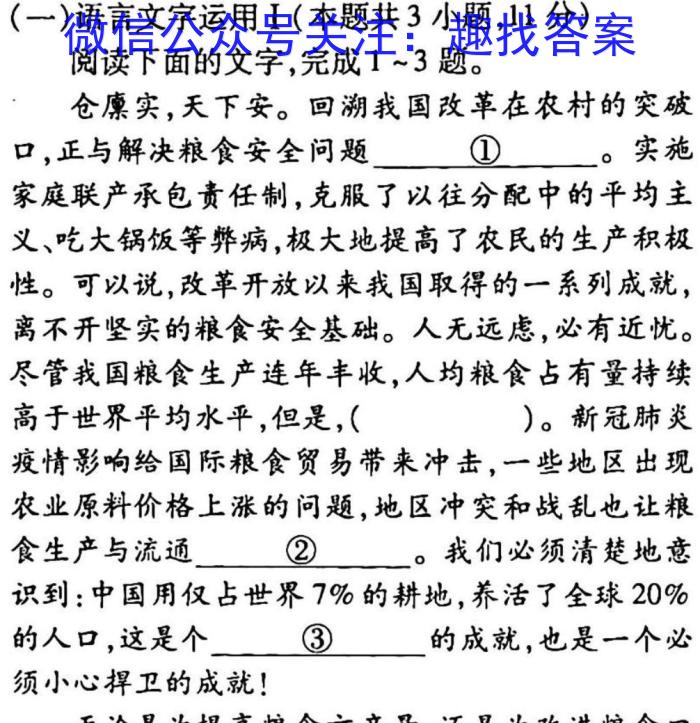 (一)语言文字运用Ⅰ(本题共3小题,11分)
微信公众号关注：趣找答案
阅读下面的文字,完成1~3题。
仓廪实,天下安。回溯我国改革在农村的突破
口,正与解决粮食安全问题①。实施
家庭联产承包责任制,克服了以往分配中的平均主
义、吃大锅饭等弊病,极大地提高了农民的生产积极
性。可以说,改革开放以来我国取得的一系列成就,
离不开坚实的粮食安全基础。人无远虑,必有近忧。
尽管我国粮食生产连年丰收,人均粮食占有量持续
高于世界平均水平,但是,( )。新冠肺炎
疫情影响给国际粮食贸易带来冲击,一些地区出现
农业原料价格上涨的问题,地区冲突和战乱也让粮
食生产与流通②。我们必须清楚地意
识到:中国用仅占世界7%的耕地,养活了全球20%
的人口,这是个③的成就,也是一个必
须小心捍卫的成就!